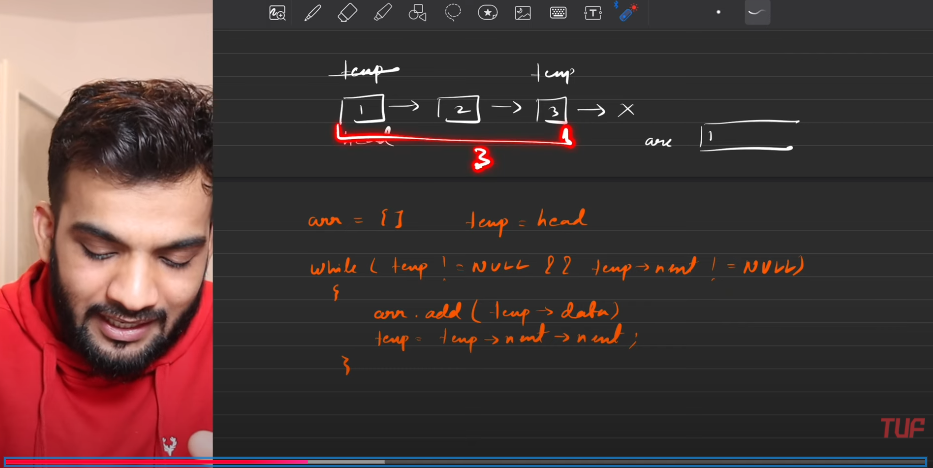 temp temp
1 → 2 → 3 → X
head
3
arr 1
arr = [ ] temp = head
while ( temp != NULL && temp → next != NULL)
{
arr.add ( temp → data)
temp = temp → next → next ;
}
TUF
T